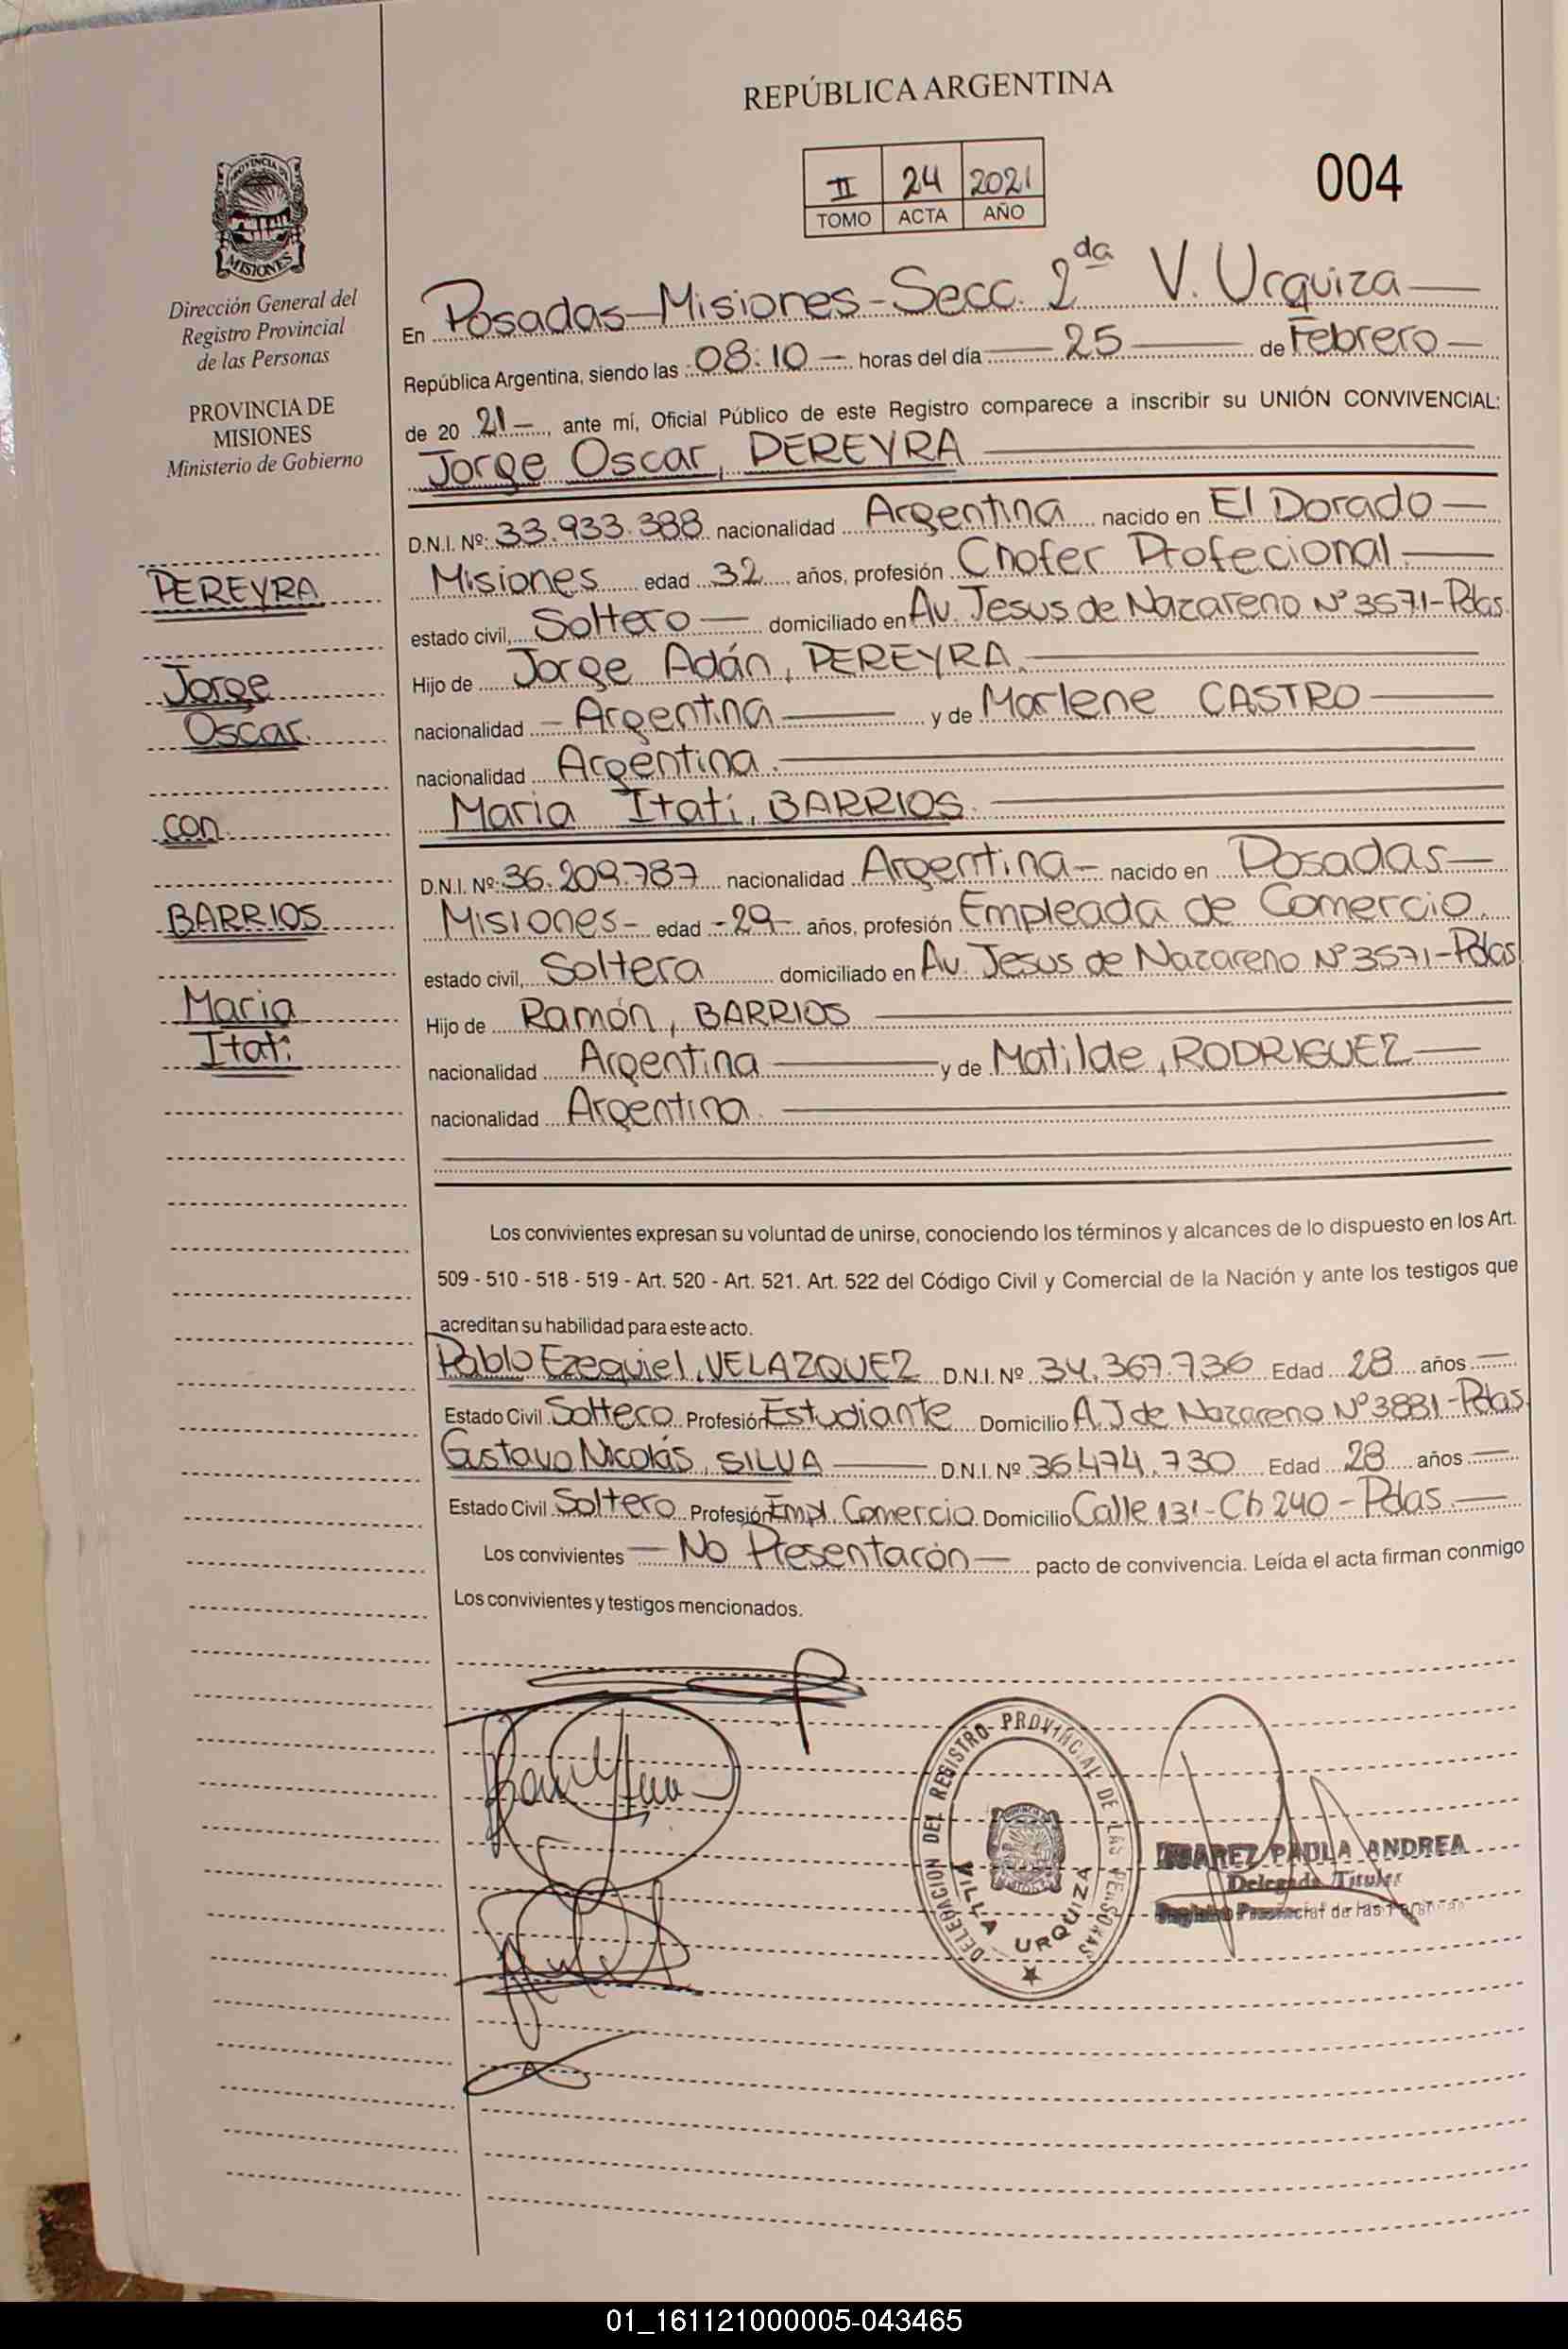 REPÚBLICA ARGENTINA
II 24 2021
TOMO ACTA AÑO
004
PROVINCIA DE
MISIONES
Dirección General del
Registro Provincial
de las Personas
PROVINCIA DE
MISIONES
Ministerio de Gobierno
En Posadas-Misiones-Secc. 2da V. Urquiza
República Argentina, siendo las 08:10 horas del día 25 de Febrero
de 20 21, ante mí, Oficial Público de este Registro comparece a inscribir su UNIÓN CONVIVENCIAL:
Jorge Oscar, PEREYRA
D.N.I. Nº: 33.933.388 nacionalidad Argentina nacido en El Dorado
Misiones edad 32 años, profesión Chofer Profecional
estado civil, Soltero domiciliado en Av. Jesus de Nazareno Nº 3571-Pdas.
Hijo de Jorge Adán, PEREYRA.
nacionalidad Argentina y de Marlene CASTRO
nacionalidad Argentina.
Maria Itati, BARRIOS.
D.N.I. Nº: 36.209.787 nacionalidad Argentina nacido en Posadas
Misiones edad 29 años, profesión Empleada de Comercio.
estado civil, Soltera domiciliado en Av. Jesus de Nazareno Nº 3571-Pdas
Hijo de Ramón, BARRIOS
nacionalidad Argentina y de Matilde, RODRIGUEZ
nacionalidad Argentina.
PEREYRA
Jorge
Oscar.
con
BARRIOS
Maria
Itati
Los convivientes expresan su voluntad de unirse, conociendo los términos y alcances de lo dispuesto en los Art.
509 - 510 - 518 - 519 - Art. 520 - Art. 521. Art. 522 del Código Civil y Comercial de la Nación y ante los testigos que
acreditan su habilidad para este acto.
Pablo Ezequiel, VELAZQUEZ D.N.I. Nº 34.367.736 Edad 28 años
Estado Civil Soltero Profesión Estudiante Domicilio A. J de Nazareno Nº 3881-Pdas.
Gustavo Nicolás, SILVA D.N.I. Nº 36.474.730 Edad 28 años
Estado Civil Soltero Profesión Empl. Comercio Domicilio Calle 131-Ch 240-Pdas.
Los convivientes No Presentarón pacto de convivencia. Leída el acta firman conmigo
Los convivientes y testigos mencionados.
DELEGACION DEL REGISTRO PROVINCIAL DE LAS PERSONAS
VILLA URQUIZA
PAULA ANDREA
Delegada Titular
Registro Provincial de las Personas
01_161121000005-043465